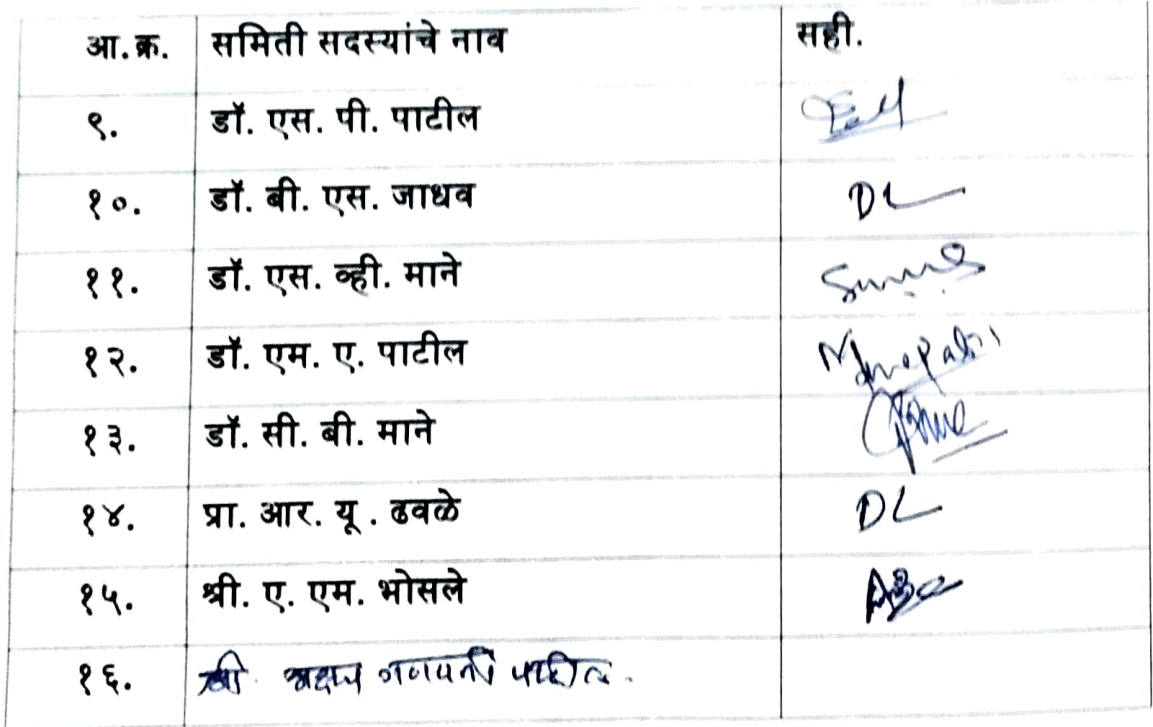 आ.क्र. समिती सदस्यांचे नाव सही.
९. डॉ. एस. पी. पाटील
१०. डॉ. बी. एस. जाधव DL
११. डॉ. एस. व्ही. माने
१२. डॉ. एम. ए. पाटील
१३. डॉ. सी. बी. माने
१४. प्रा. आर. यू. ढवळे DL
१५. श्री. ए. एम. भोसले
१६. श्री. अक्षय गणपती पाटील.